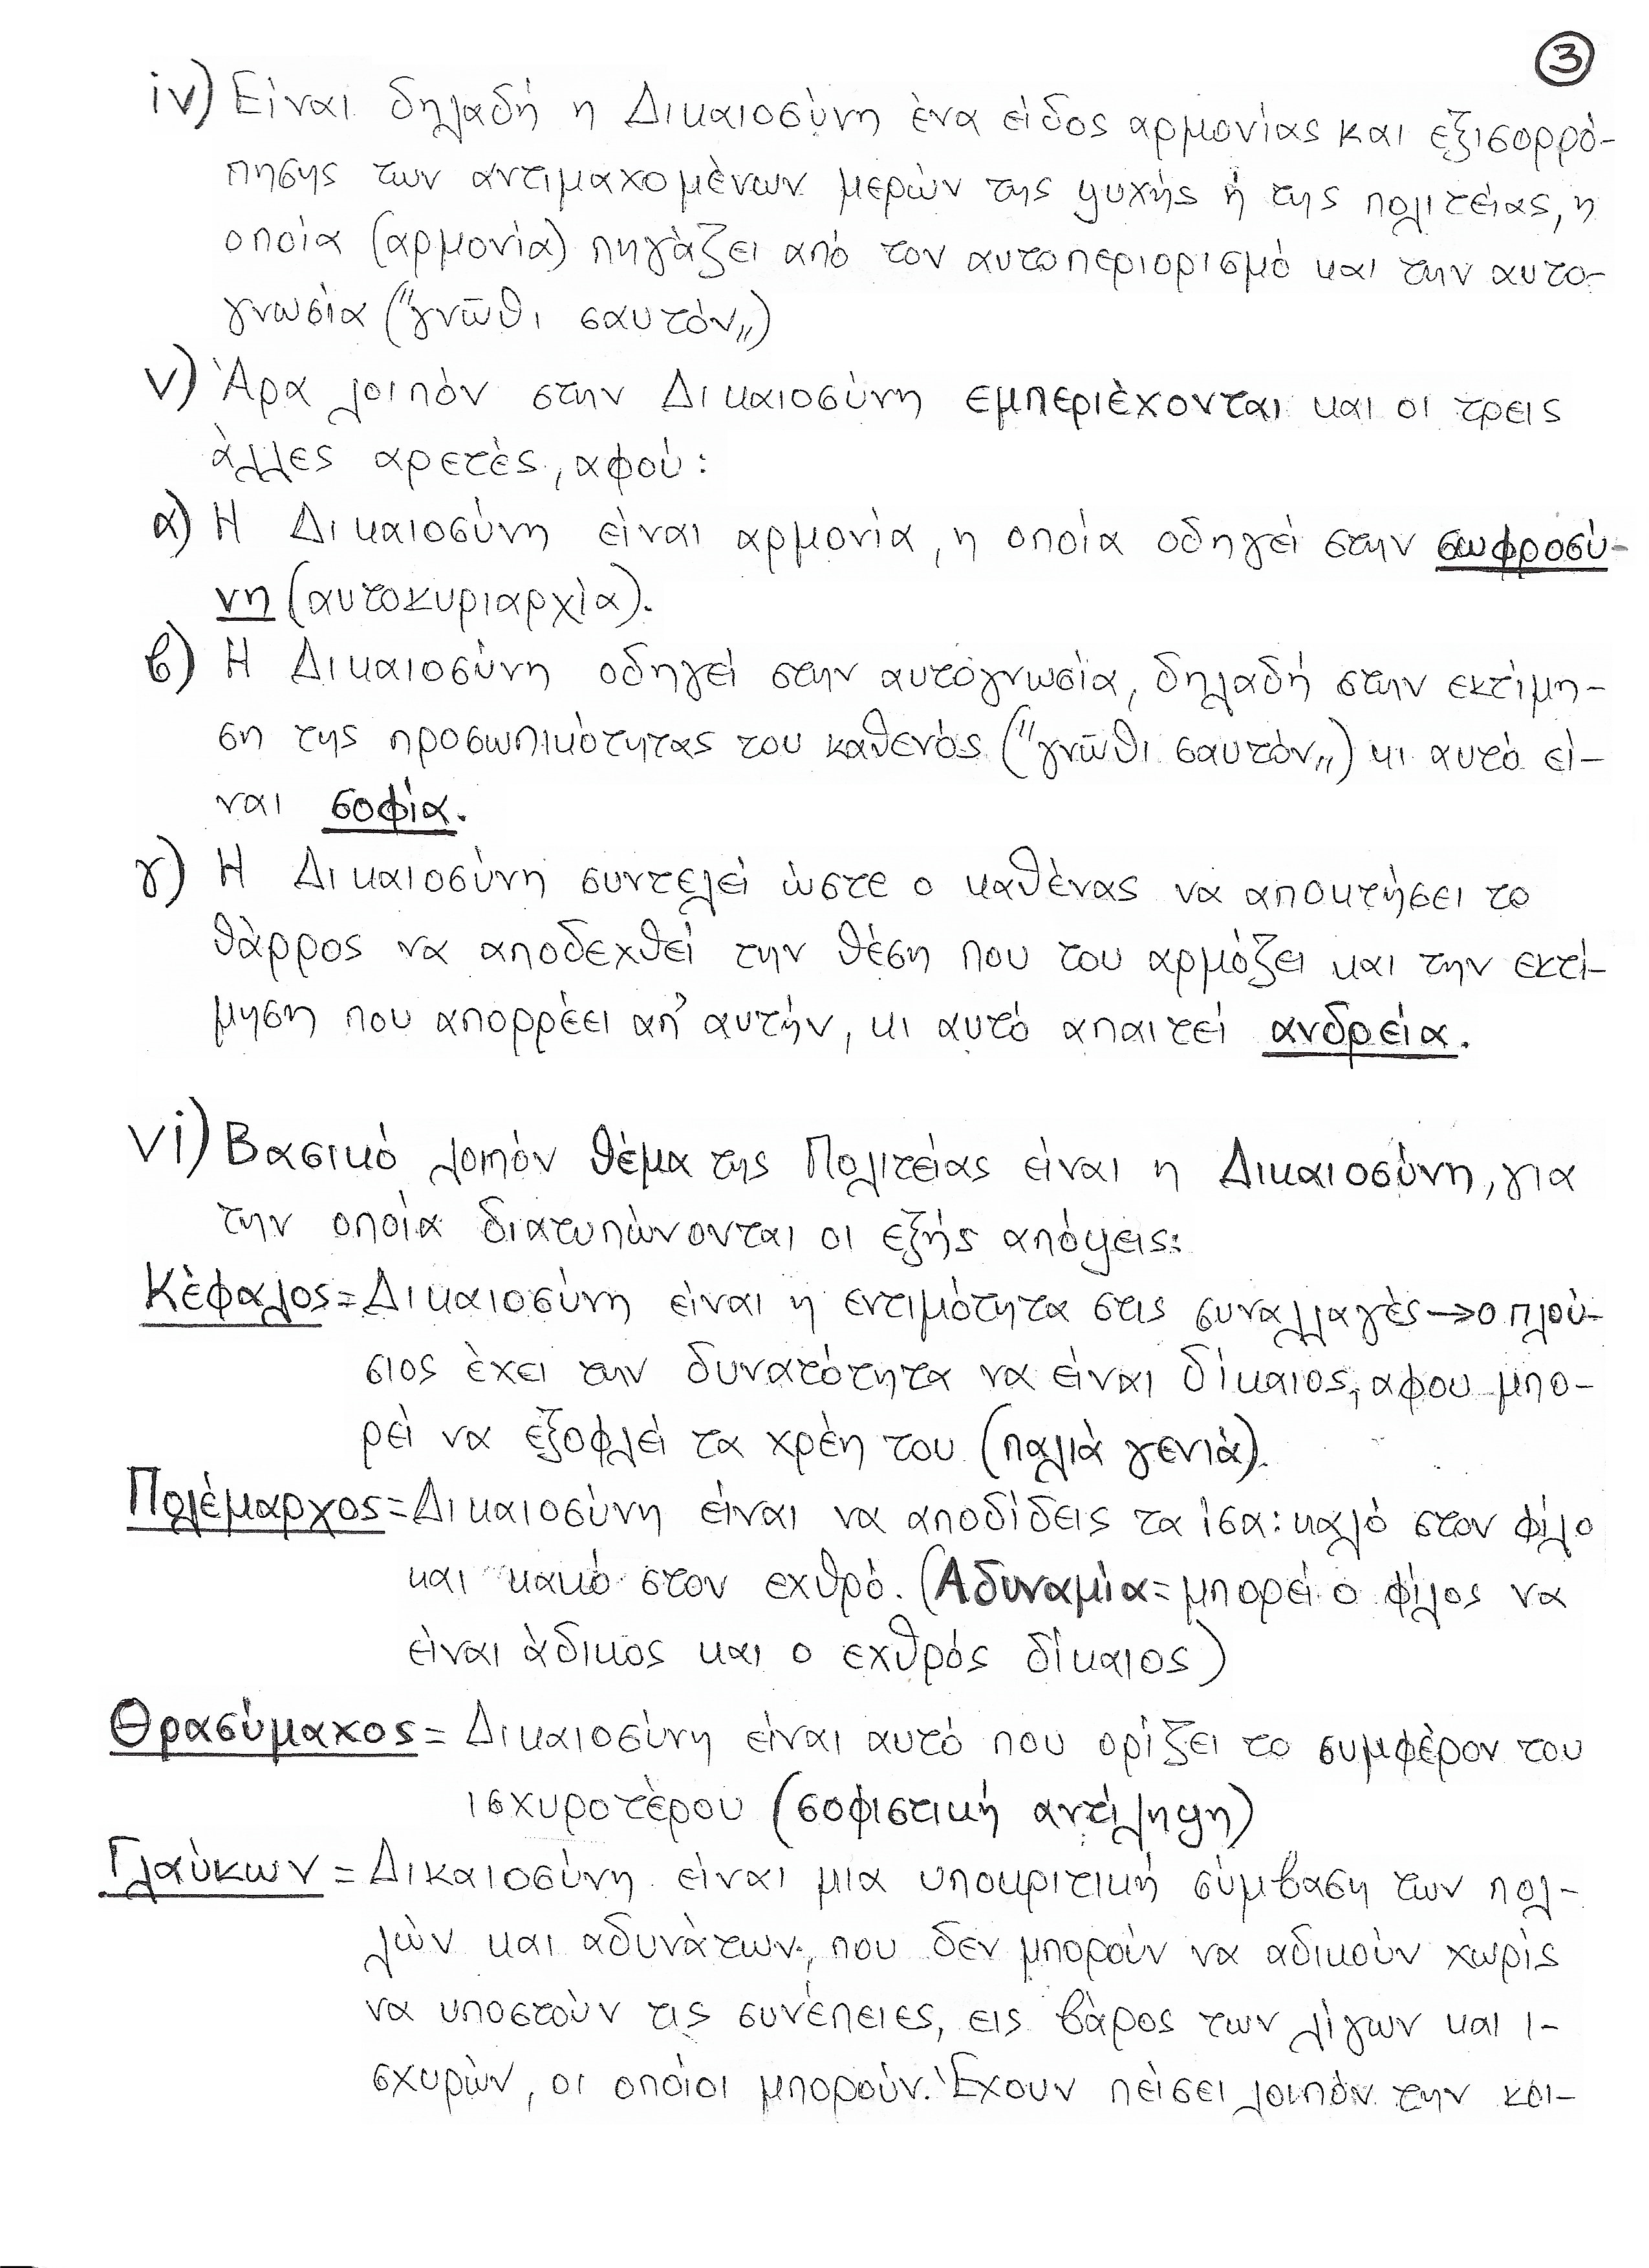 ③
iv) Είναι δηλαδή η Δικαιοσύνη ένα είδος αρμονίας και εξισορρό-
πησης των αντιμαχομένων μερών της ψυχής ή της πολιτείας, η
οποία (αρμονία) πηγάζει από τον αυτοπεριορισμό και την αυτο-
γνωσία ("γνῶθι σαυτόν„)
v) Άρα λοιπόν στην Δικαιοσύνη εμπεριέχονται και οι τρεις
άλλες αρετές, αφού:
α) Η Δικαιοσύνη είναι αρμονία, η οποία οδηγεί στην σωφροσύ-
νη (αυτοκυριαρχία).
β) Η Δικαιοσύνη οδηγεί στην αυτογνωσία, δηλαδή στην εκτίμη-
ση της προσωπικότητας του καθενός ("γνῶθι σαυτόν„) κι αυτό εί-
ναι σοφία.
γ) Η Δικαιοσύνη συντελεί ώστε ο καθένας να αποκτήσει το
θάρρος να αποδεχθεί την θέση που του αρμόζει και την εκτί-
μηση που απορρέει απ' αυτήν, κι αυτό απαιτεί ανδρεία.
vi) Βασικό λοιπόν θέμα της Πολιτείας είναι η Δικαιοσύνη, για
την οποία διατυπώνονται οι εξής απόψεις:
Κέφαλος = Δικαιοσύνη είναι η εντιμότητα στις συναλλαγές → ο πλού-
σιος έχει την δυνατότητα να είναι δίκαιος, αφου μπο-
ρεί να εξοφλεί τα χρέη του (παλιά γενιά).
Πολέμαρχος = Δικαιοσύνη είναι να αποδίδεις τα ίσα: καλό στον φίλο
και κακό στον εχθρό. (Αδυναμία = μπορεί ο φίλος να
είναι άδικος και ο εχθρός δίκαιος)
Θρασύμαχος = Δικαιοσύνη είναι αυτό που ορίζει το συμφέρον του
ισχυροτέρου (σοφιστική αντίληψη)
Γλαύκων = Δικαιοσύνη είναι μια υποκριτική σύμβαση των πολ-
λών και αδυνάτων, που δεν μπορούν να αδικούν χωρίς
να υποστούν τις συνέπειες, εις βάρος των λίγων και ι-
σχυρών, οι οποίοι μπορούν. Έχουν πείσει λοιπόν την κοι-